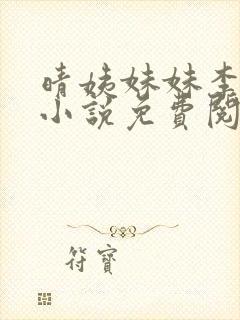 晴姨妹妹李
小说免費閱
符寶